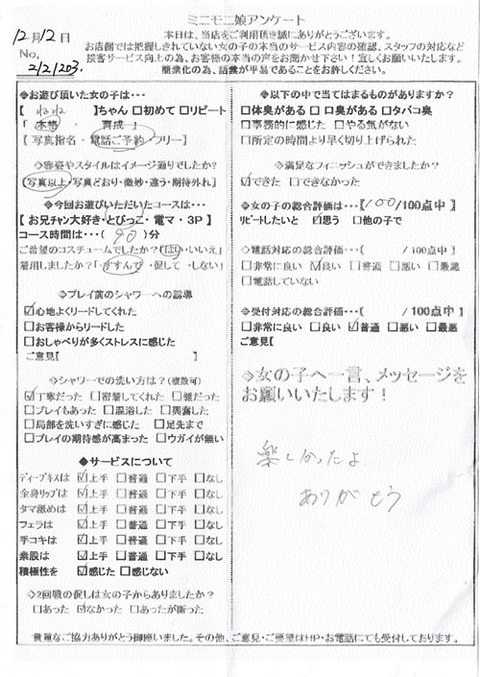 ミニモニ娘アンケート
12月12日
本日は、当店をご利用頂き誠にありがとうございます。
No.
お店側では把握しきれていない女の子の本当のサービス内容の確認、スタッフの対応など
2121203.
接客サービス向上の為、お客様の本当の声をお聞かせ下さい!宜しくお願いいたします。
簡業化の為、語彙が平易であることをお許しください。
◆お遊び頂いた女の子は・・・
【 ねね 】ちゃん □初めて □リピート
「本格 ・ 育成」
【写真指名・電話ご予約・フリー】
◇容姿やスタイルはイメージ通りでしたか?
【写真以上・写真どおり・微妙・違う・期待外れ】
◆今回お遊びいただいたコースは・・・
【お兄チャン大好き・とびっこ・電マ・3P】
コース時間は・・・( 90 )分
ご希望のコスチュームでしたか?(はい・いいえ)
着用しましたか?「すすんで・促して・しない」
◇プレイ前のシャワーへの誘導
☑心地よくリードしてくれた
□お客様からリードした
□おしゃべりが多くストレスに感じた
ご意見【 】
◇シャワーでの洗い方は?(複数可)
☑丁寧だった □密着してくれた □雑だった
□プレイもあった □混浴した □興奮した
□局部を洗いすぎに感じた □足先まで
□プレイの期待感が高まった □ウガイが無い
◆サービスについて
ディープキスは ☑上手 □普通 □下手 □なし
全身リップは ☑上手 □普通 □下手 □なし
タマ舐めは ☑上手 □普通 □下手 □なし
フェラは ☑上手 □普通 □下手 □なし
手コキは ☑上手 □普通 □下手 □なし
素股は ☑上手 □普通 □下手 □なし
積極性を ☑感じた □感じない
◇2回戦の促しは女の子からありましたか?
□あった ☑なかった □あったが断った
◆以下の中で当てはまるものがありますか?
□体臭がある □口臭がある □タバコ臭
□事務的に感じた □やる気がない
□所定の時間より早く切り上げられた
◇満足なフィニッシュができましたか?
☑できた □できなかった
◆女の子の総合評価は・・・( 100 /100点中)
リピートしたいと ☑思う □他の子で
◇電話対応の総合評価・・・( /100点中)
□非常に良い ☑良い □普通 □悪い □最悪
□電話していない
◆受付対応の総合評価・・・( /100点中)
□非常に良い □良い ☑普通 □悪い □最悪
ご意見【 】
◇女の子へ一言、メッセージを
お願いいたします!
楽しかったよ
ありがとう
貴重なご協力ありがとう御座いました。その他、ご意見・ご要望はHP・お電話にても受付しております。